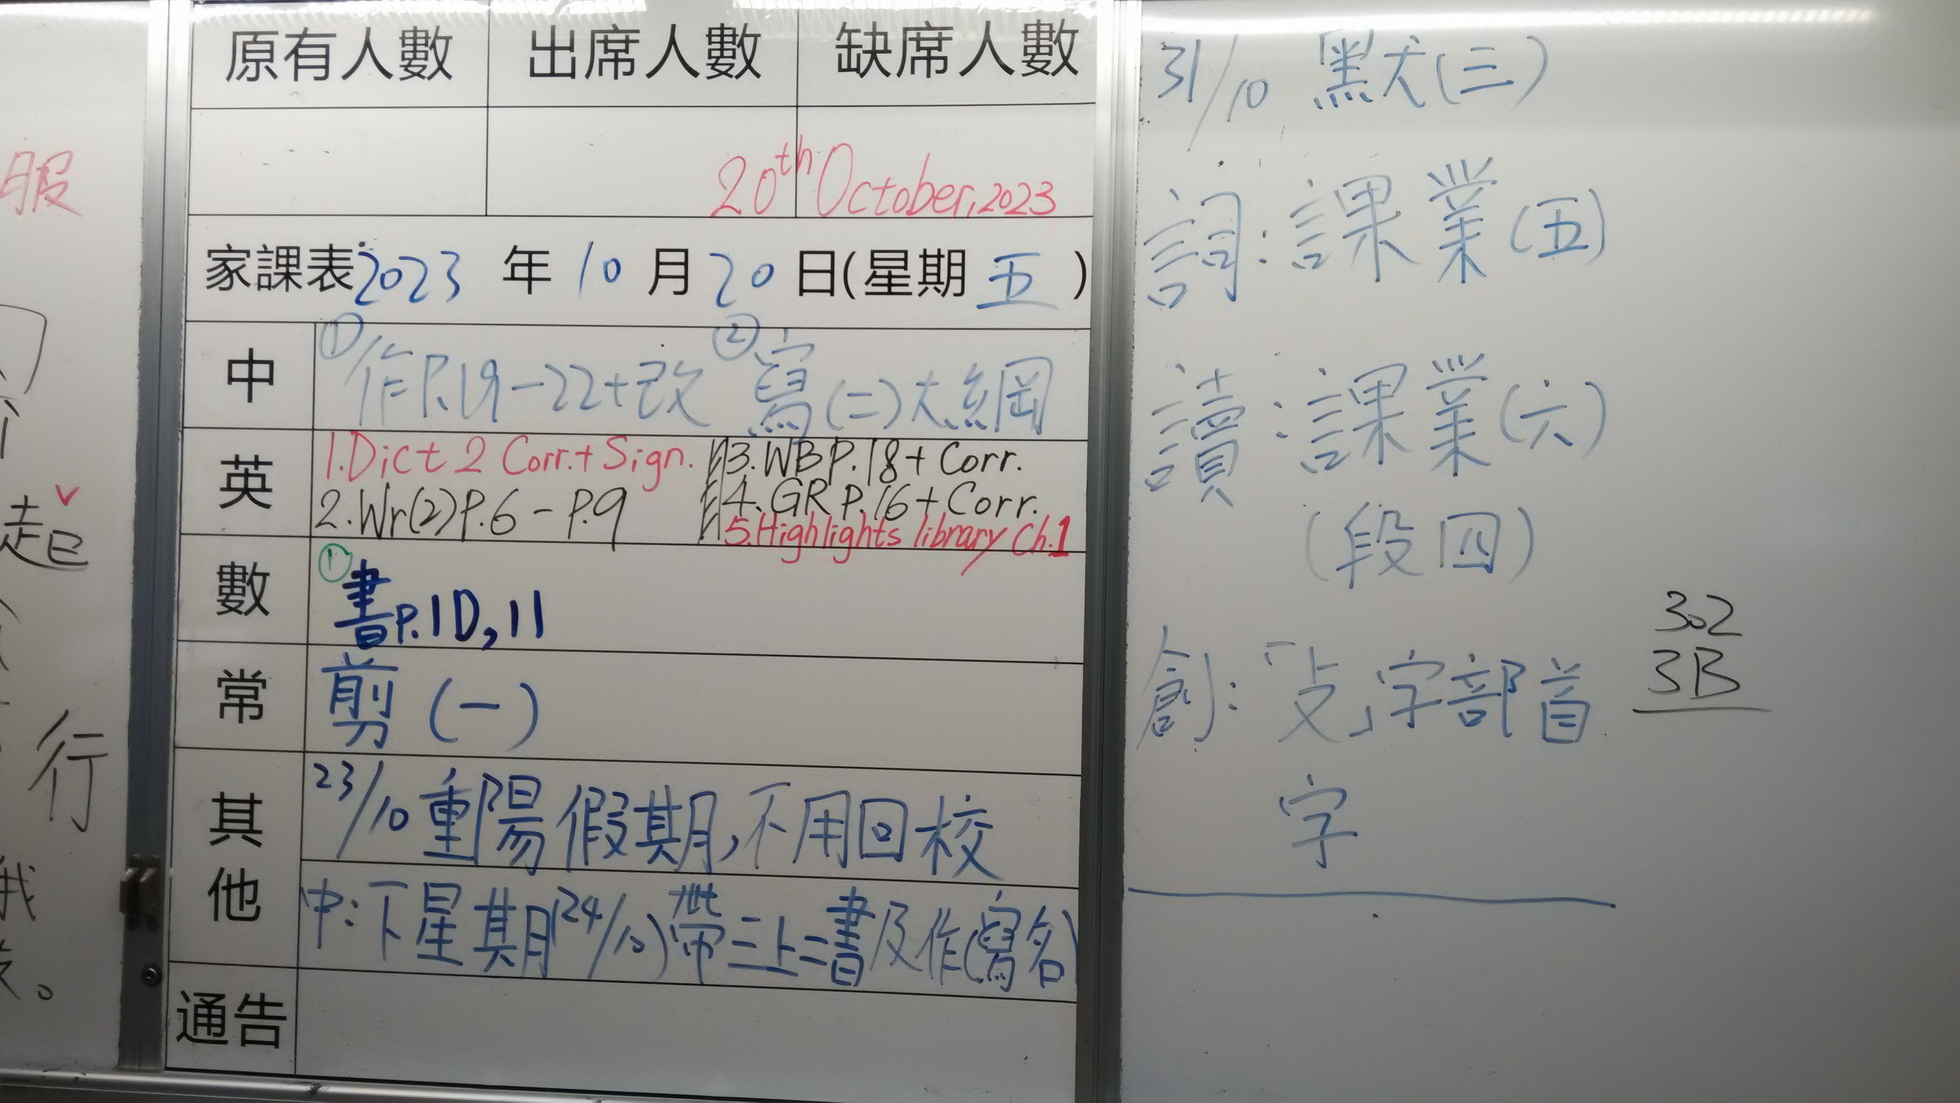 服
起
行
我
。
原有人數 出席人數 缺席人數
20th October, 2023
家課表:2023 年 10 月 20 日(星期 五 )
中 ①作P.19-22+改 ②寫(二)大綱
英 1.Dict 2 Corr.+ Sign. 3.WB P.18+ Corr.
2.Wr(2)P.6 - P.9 4.GR P.16+ Corr.
5.Highlights library Ch.1
數 ①書P.10,11
常 剪(一)
其他 23/10 重陽假期,不用回校
中:下星期(24/10)帶三上二書及作(寫名)
通告
31/10 默(三)
詞:課業(五)
讀:課業(六)
(段四)
創:「攴」字部首
字
302
3B